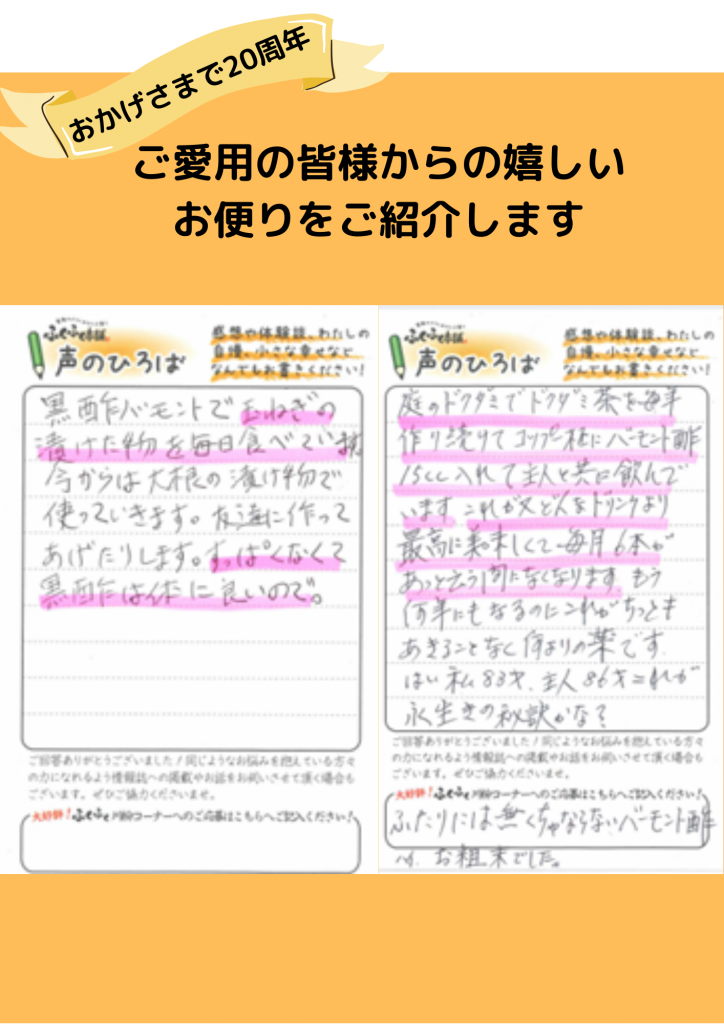 おかげさまで20周年
ご愛用の皆様からの嬉しい
お便りをご紹介します
声のひろば
感想や体験談、わたしの
自慢、小さな幸せなど
なんでもお書きください!
黒酢バーモントで玉ねぎの
漬けた物を毎日食べています
今からは大根の漬け物で
使っていきます。友達に作って
あげたりします。すっぱくなくて
黒酢は体に良いので。
ご回答ありがとうございました!同じようなお悩みを抱えている方々
の力になれるよう情報誌への掲載やお話をお伺いさせて頂く場合も
ございます。ぜひご協力くださいませ。
大好評!ふくふく川柳コーナーへのご応募はこちらへご記入ください!
声のひろば
感想や体験談、わたしの
自慢、小さな幸せなど
なんでもお書きください!
庭のドクダミでドクダミ茶を毎年
作り続けてコップ一杯にバーモント酢
15cc入れて主人と共に飲んで
います これが又どんなドリンクより
最高に美味しくて毎月6本が
あっと云う間になくなります。もう
何年にもなるのにこれがちっとも
あきることなく何よりの薬です。
はい私83才、主人86才これが
永生きの秘訣かな?
ご回答ありがとうございました!同じようなお悩みを抱えている方々
の力になれるよう情報誌への掲載やお話をお伺いさせて頂く場合も
ございます。ぜひご協力ください。
大好評!ふくふく川柳コーナーへのご応募はこちらへご記入ください!
ふたりには無くちゃならないバーモント酢
お粗末でした。